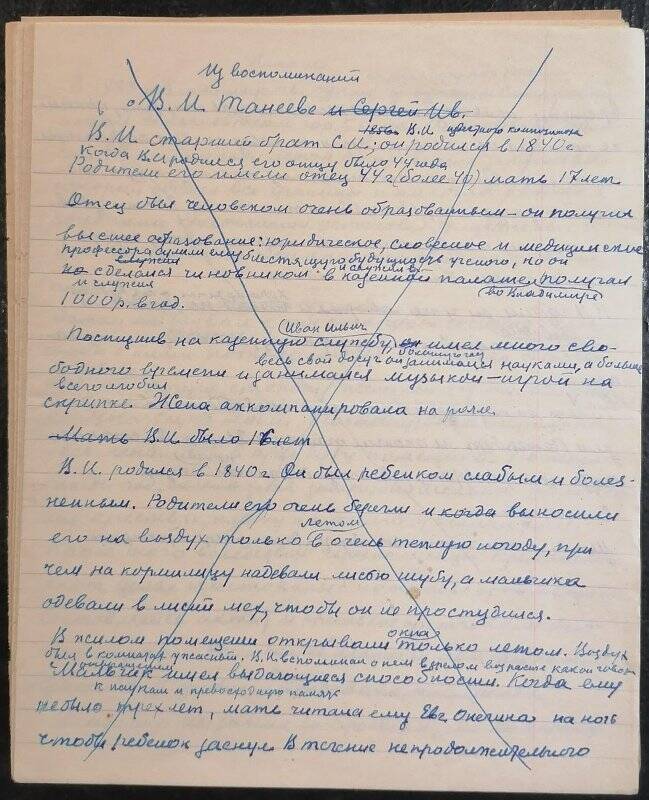 Из воспоминаний
о В. И. Танееве и Сергей Ив.
В. И. известного композитора
В. И. старший брат С. И.; он родился в 1840 г
Когда В. И родился его отцу было 44 года
Родители его имели отец 44 г (более 40) мать 17 лет
Отец был человеком очень образованным – он получил
высшее образование: юридическое, словесное и медицинское
профессора сулили ему блестящую будущность ученого, но он
служил и служил в
но сделался чиновником в казенной палате, получал
и служил (во Владимире)
1000 р. в год.
(Иван Ильич
Поступив на казенную службу, он имел много сво-
весь свой досуг он занимался науками, а больше
бодного времени и занимался музыкой – игрой на
всего любил
скрипке. Жена аккомпанировала на рояле.
Мать В. И. было 16 лет
В. И. родился в 1840 г Он был ребенком слабым и болез-
ненным. Родители его очень берегли и когда выносили
летом
его на воздух только в очень теплую погоду, при
чем на кормилицу надевали лисью шубу, а мальчика
одевали в лисий мех, чтобы он не простудился.
окна
В жилом помещении открывали только летом. Воздух
был в комнатах ужасный. В. И. вспоминал о нем в зрелом возрасте
Мальчик имел выдающиеся способности. Когда ему
к наукам и превосходную память
не было трех лет, мать читала ему Евг. Онегина на ночь
чтобы ребенок заснул. В течение непродолжительного